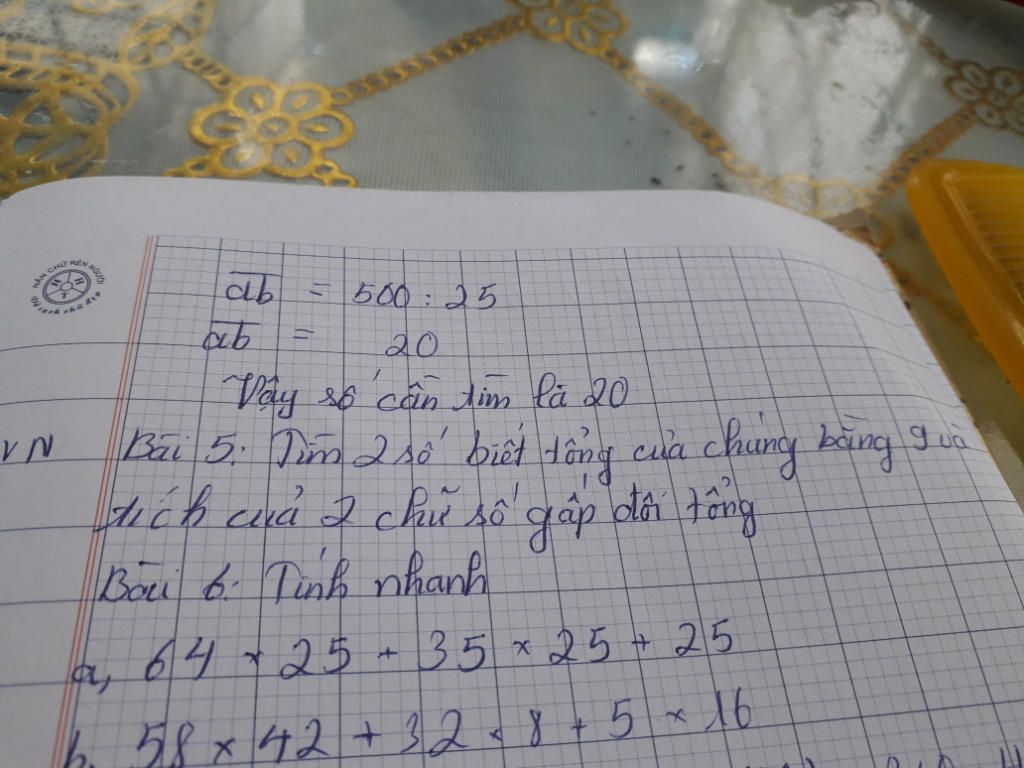 NẮN CHỮ RÈN NGƯỜI
ab = 500 : 25
ab = 20
Vậy số cần tìm là 20
VN Bài 5: Tìm 2 số biết tổng của chúng bằng 9 và
tích của 2 chữ số gấp đôi tổng
Bài 6: Tính nhanh
a, 64 × 25 + 35 × 25 + 25
b. 58 × 42 + 32 × 8 + 5 × 16